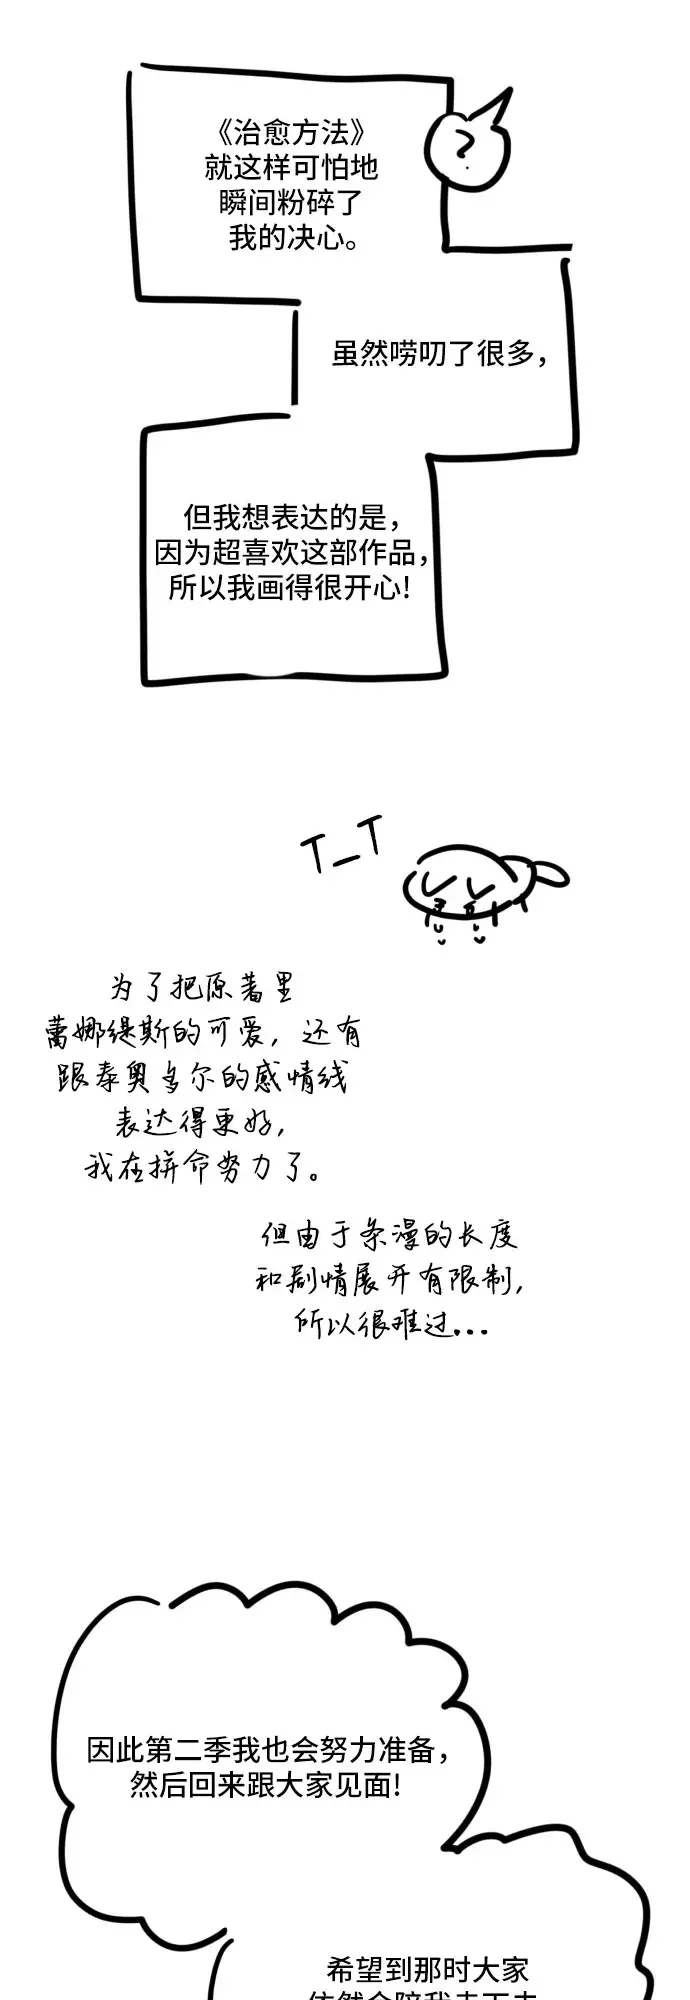 《治愈方法》
就这样可怕地
瞬间粉碎了
我的决心。
?
虽然唠叨了很多，
但我想表达的是，
因为超喜欢这部作品，
所以我画得很开心!
T_T
为了把原著里
蕾娜缇斯的可爱，还有
跟泰奥多尔的感情线
表达得更好，
我在拼命努力了。
但由于条漫的长度
和剧情展开有限制，
所以很难过...
因此第二季我也会努力准备，
然后回来跟大家见面!
希望到那时大家